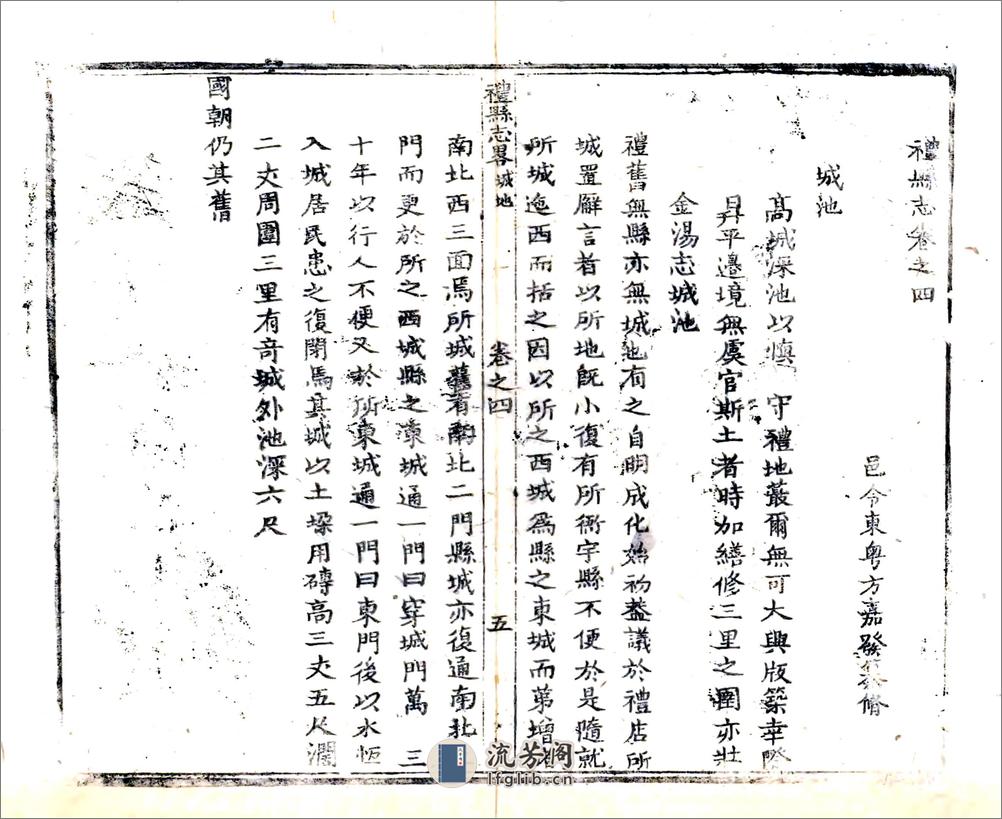 禮縣志卷之四
邑令東粤方嘉發
城池
高城深池以慎 守禮地蕞爾無可大興版築幸際
昇平邊境無虞官斯土者時加繕修三里之圍亦壯
金湯志城池
禮舊無縣亦無城也有之自明成化始初蓋議於禮店所
城置廨言者以所地旣小復有所衙宇縣不便於是隨就
所城迤西而括之因以所之西城爲縣之東城而第增者
禮縣志畧 城池 卷之四 五
南北西三面焉所城舊有南北二門縣城亦復通南北
門而更於所之西城縣之東城通一門曰穿城門萬 三
十年以行人不便又於所東城通一門曰東門後以水恆
入城居民患之復閉焉其城以土垜用磚高三丈五尺濶
二丈周圍三里有奇城外池深六尺
國朝仍其舊
流芳阁
lfglib.cn